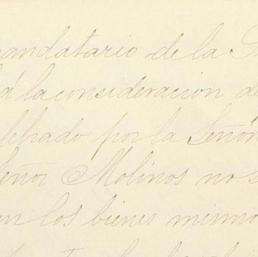 mandatario de la S
á la consideracion de
lebrado por la Señor
eñor Molinos no s
en los bienes mismo